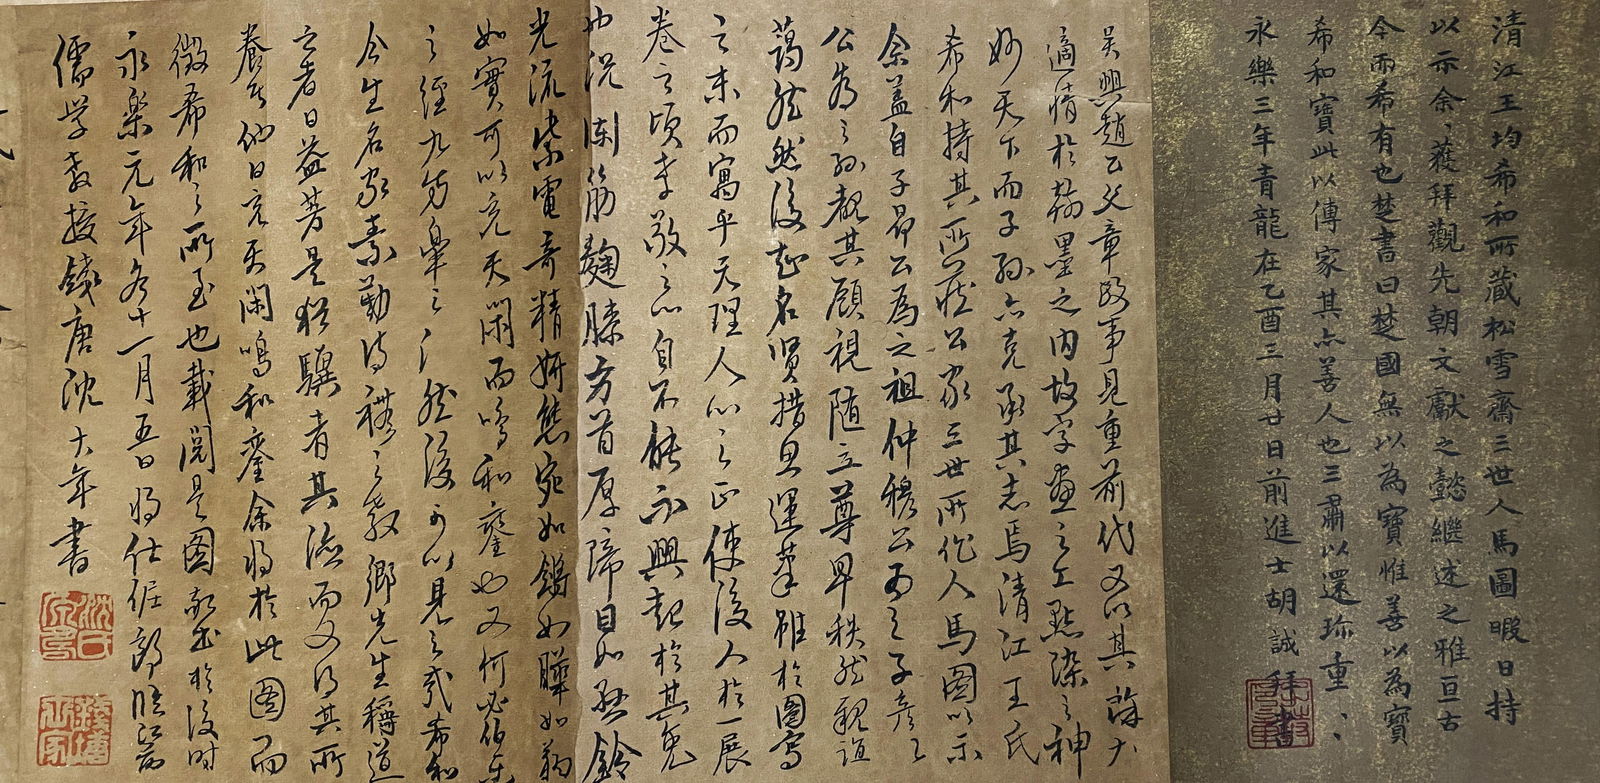 清江王均希和所藏松雪齋三世人馬圖暇日持
以示余、獲拜觀先朝文獻之懿繼述之雅亘古
今而希有也楚書曰楚國無以為寶惟善以為寶
希和寶此以傳家其亦善人也三肅以還珎重、
永樂三年青龍在乙酉三月廿日前進士胡誠拜書
吳興趙公文章政事見重前代又以其餘力
適情於翰墨之內故字畫之工點染之神
妙天下而子孫亦克承其志焉清江王氏
希和持其所藏公家三世所作人馬圖以示
余蓋自子昂公為之祖仲穆公為之子彥
公為之孫觀其顧視随立尊卑秩然親誼
藹然然後知名賢措思運筆雖於圖寫
之末而寓乎天理人心之正使後人於一展
卷之頃孝敬之心自不能不興起於其
也況蘭筋麴膝方首厚蹄目如懸鈴
光流紫電奇精妍態宛如
如實可以充天閑而鳴和鑾也又何必伯樂
之經九方皐之然後可以見之哉希和
今生名家素勤詩禮之教鄉先生稱道
之者日益著是猶驥者其德而又得其所
養焉他日充天閑鳴和鑾余將於此圖而
徵希和之所至也載閱是圖敬書於後時
永樂元年冬十一月五日將仕佐郎臨江府
儒学教授錢唐沈大年書
沈氏